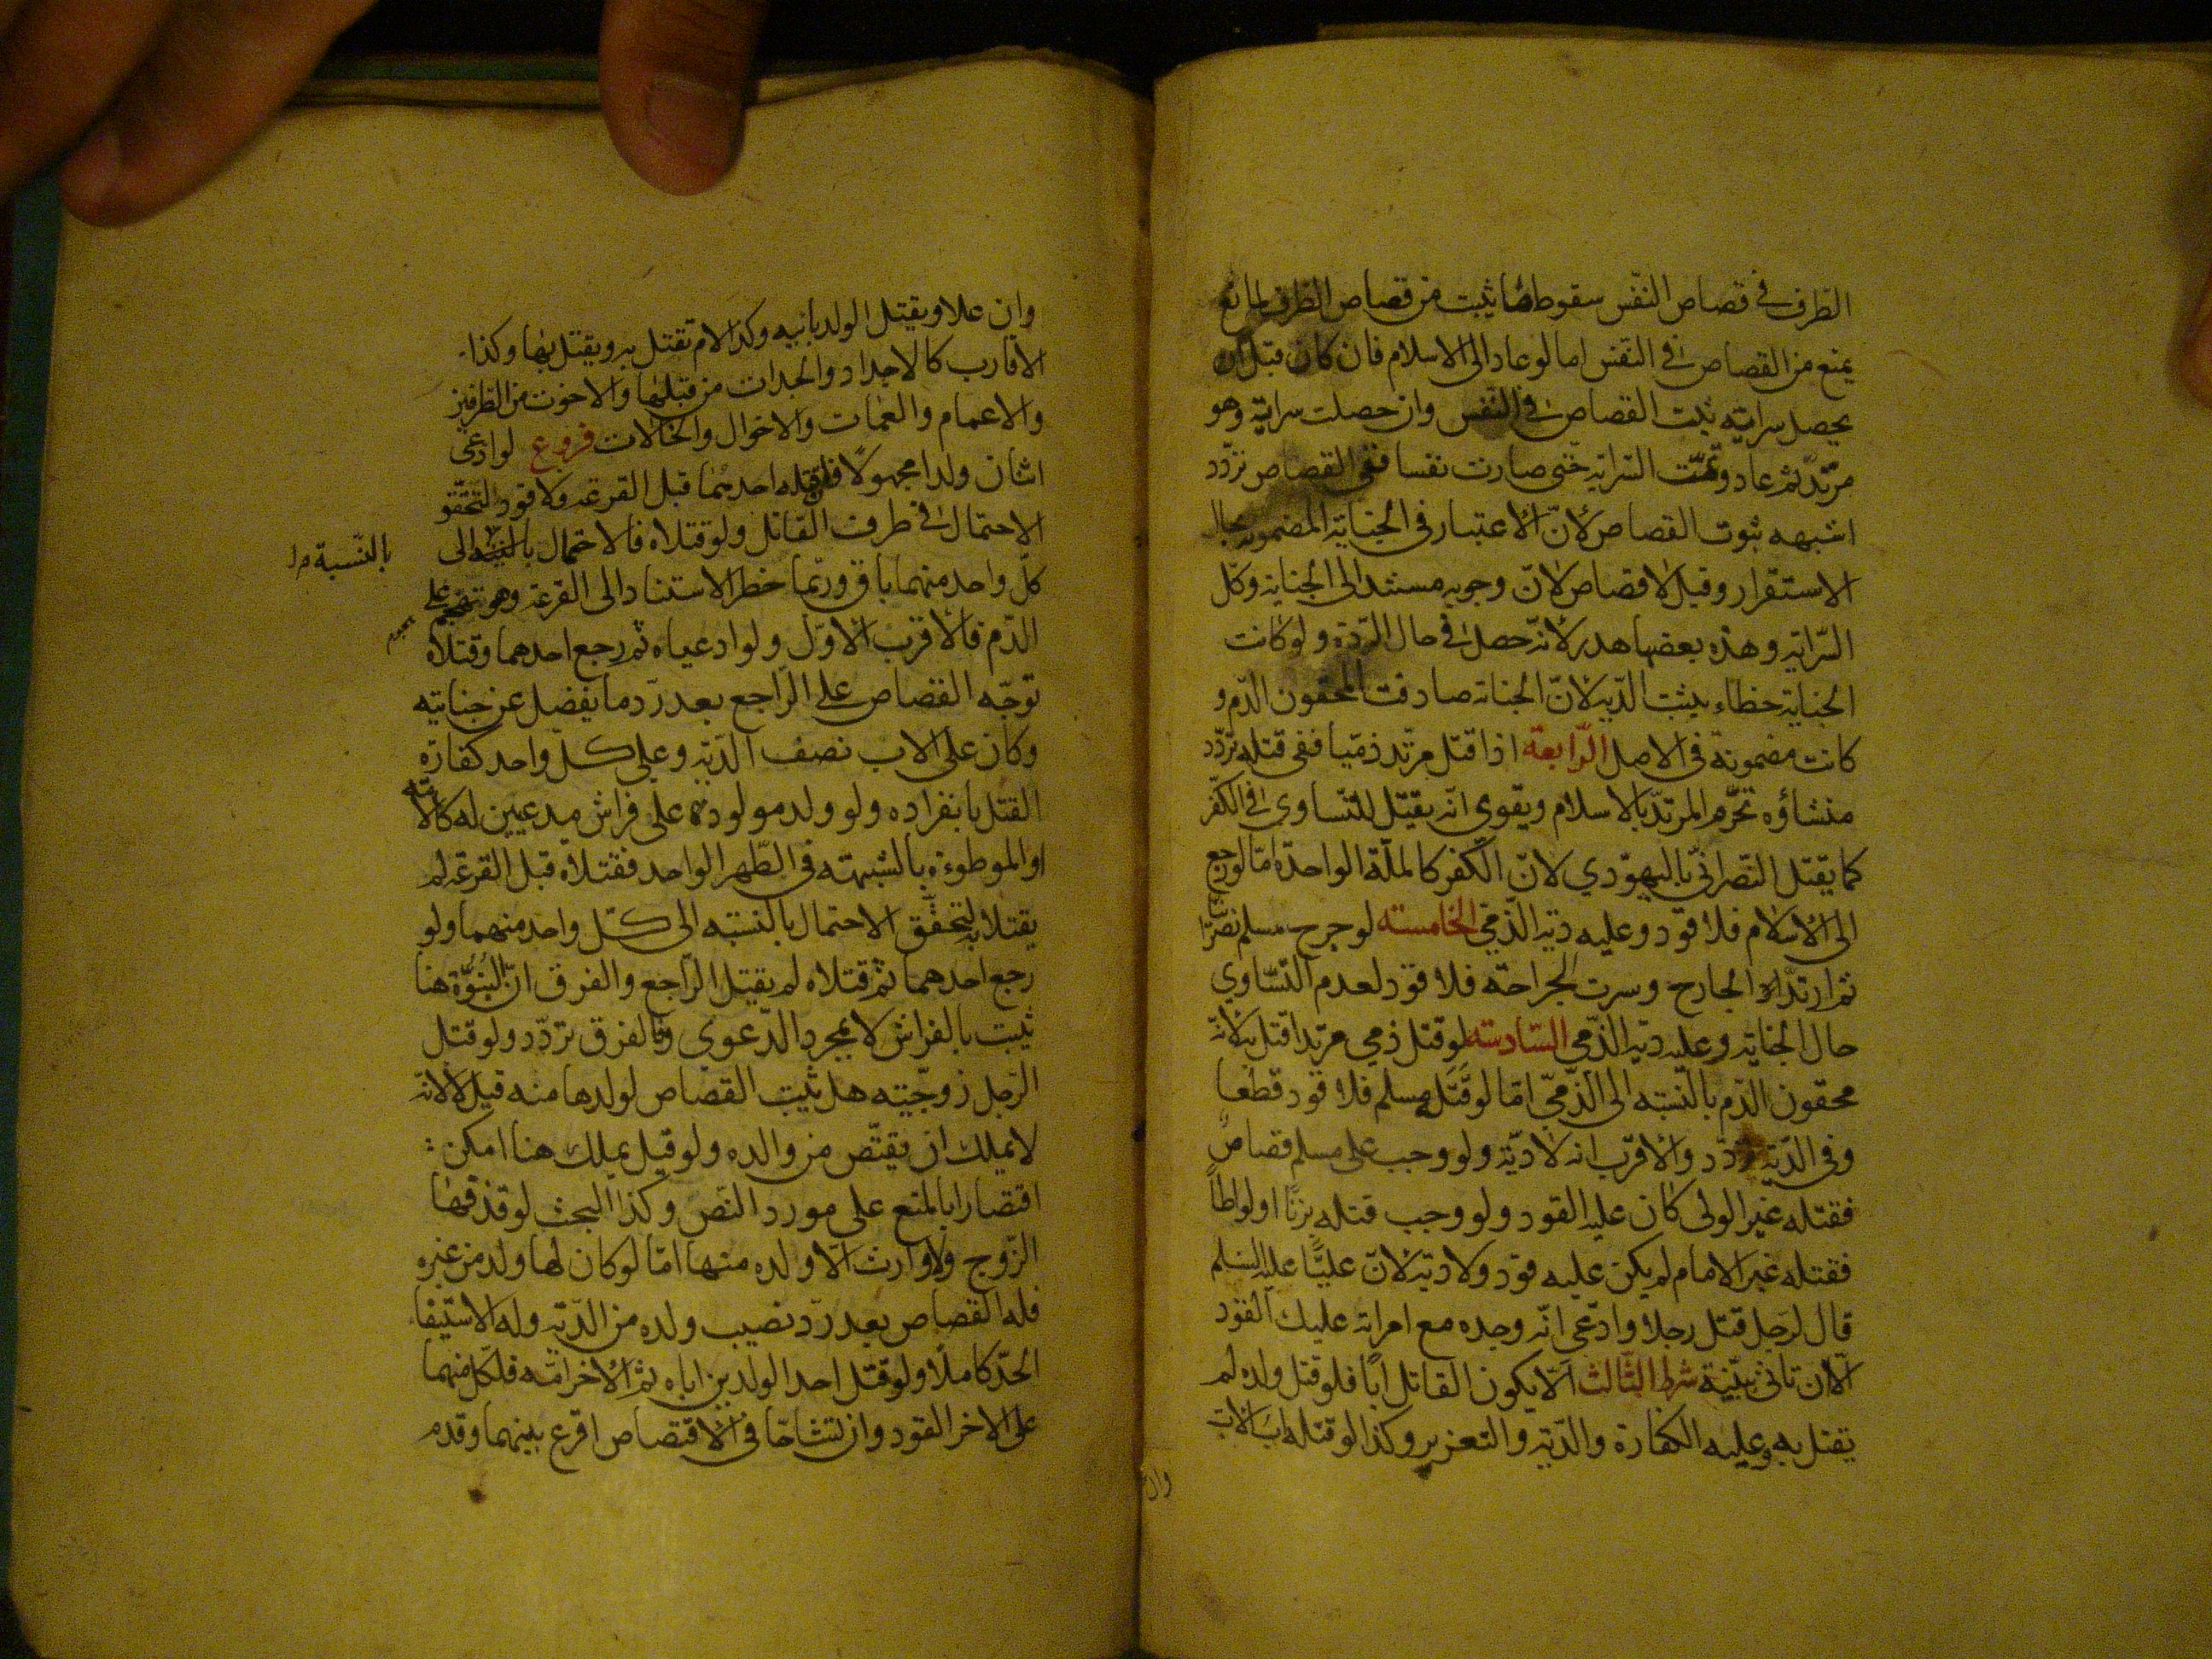 الطرف في قصاص النفس سقوط ما يثبت من قصاص الطرف لمانع
يمنع من القصاص في النفس اما لو عاد الى الاسلام فان كان قبل ان
يحصل سرايته ثبت القصاص في النفس وان حصلت سراية وهو
مرتد ثم عاد وتمت السراية حتى صارت نفسا ففي القصاص تردد
اشبهه ثبوت القصاص لان الاعتبار في الجناية المضمونة بحال
الاستقرار وقيل لا قصاص لان وجوبه مستند الى الجناية وكل
السراية وهذه بعضها هدر لانه حصل في حال الردة ولو كانت
الجناية خطاء يثبت الدية لان الجناية صادفت المحقون الدم و
كانت مضمونة في الاصل الرابعة اذا قتل مرتد ذميا ففي قتله تردد
منشاؤه تحرم المرتد بالاسلام ويقوى انه يقتل للتساوي في الكفر
كما يقتل النصراني باليهودي لان الكفر كالملة الواحدة اما لو رجع
الى الاسلام فلا قود وعليه دية الذمي الخامسة لو جرح مسلم نصرانيا
ثم ارتد الجارح وسرت الجراحة فلا قود لعدم التساوي
حال الجناية وعليه دية الذمي السادسة لو قتل ذمي مرتدا قتل به لانه
محقون الدم بالنسبة الى الذمي اما لو قتله مسلم فلا قود قطعا
وفي الدية تردد والاقرب انه لا دية ولو وجب على مسلم قصاص
فقتله غير الولي كان عليه القود ولو وجب قتله بزنا او لواط
فقتله غير الامام لم يكن عليه قود ولا دية لان عليا عليه السلم
قال لرجل قتل رجلا وادعى انه وجده مع امراته عليك القود
الا ان تاتي ببينة شرط الثالث الا يكون القاتل ابا فلو قتل ولده لم
يقتل به وعليه الكفارة والدية والتعزير وكذا لو قتله اب الاب
وان
وان علا ويقتل الولد بابيه وكذا الام تقتل به ويقتل بها وكذا
الاقارب كالاجداد والجدات من قبلها والاخوت من الطرفين
والاعمام والعمات والاخوال والخالات فروع لو ادعى
اثنان ولدا مجهولا فان قتله احدهما قبل القرعة فلا قود لتحقق
الاحتمال في طرف القاتل ولو قتلاه فالاحتمال بالنسبة الى
بالنسبة
كل واحد منهما باق وربما خطر الاستناد الى القرعة وهو تهجم على
الدم فالاقرب الاول ولو ادعياه ثم رجع احدهما وقتلاه
توجه القصاص على الراجع بعد رد ما يفضل عن جنايته
وكان على الاب نصف الدية وعلى كل واحد كفارة
القتل بانفراده ولو ولد مولود على فراش مدعيين له كالامة
او الموطوءة بالشبهة في الطهر الواحد فقتلاه قبل القرعة لم
يقتلا به لتحقق الاحتمال بالنسبة الى كل واحد منهما ولو
رجع احدهما ثم قتلاه لم يقتل الراجع والفرق ان البنوة هنا
ثبت بالفراش لا بمجرد الدعوى وفي الفرق تردد ولو قتل
الرجل زوجته هل يثبت القصاص لولدها منه قيل لا لانه
لا يملك ان يقتص من والده ولو قيل يملك هنا امكن
اقتصارا بالمنع على مورد النص وكذا البحث لو قذفها
الزوج ولا وارث الا ولده منها اما لو كان لها ولد من غيره
فله القصاص بعد رد نصيب ولده من الدية وله الاستيفا
الحد كاملا ولو قتل احد الولدين اباه ثم الاخر امه فلكل منهما
على الاخر القود وان تشاحا في الاقتصاص اقرع بينهما وقدم